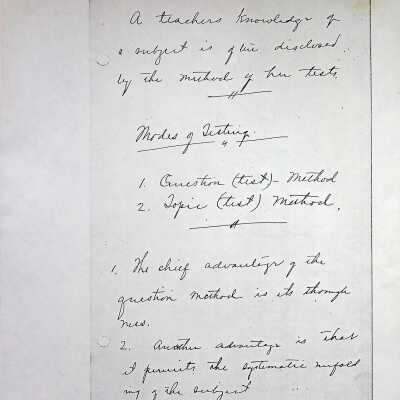 A teachers knowledge of
a subject is often disclosed
by the method of her tests.
Modes of Testing.
1. Question (test) - Method
2. Topic (test) Method.
1. The chief advantage of the
question method is its through
ness.
2. Another advantage is that
it permits the systematic unfold
ing of the subject